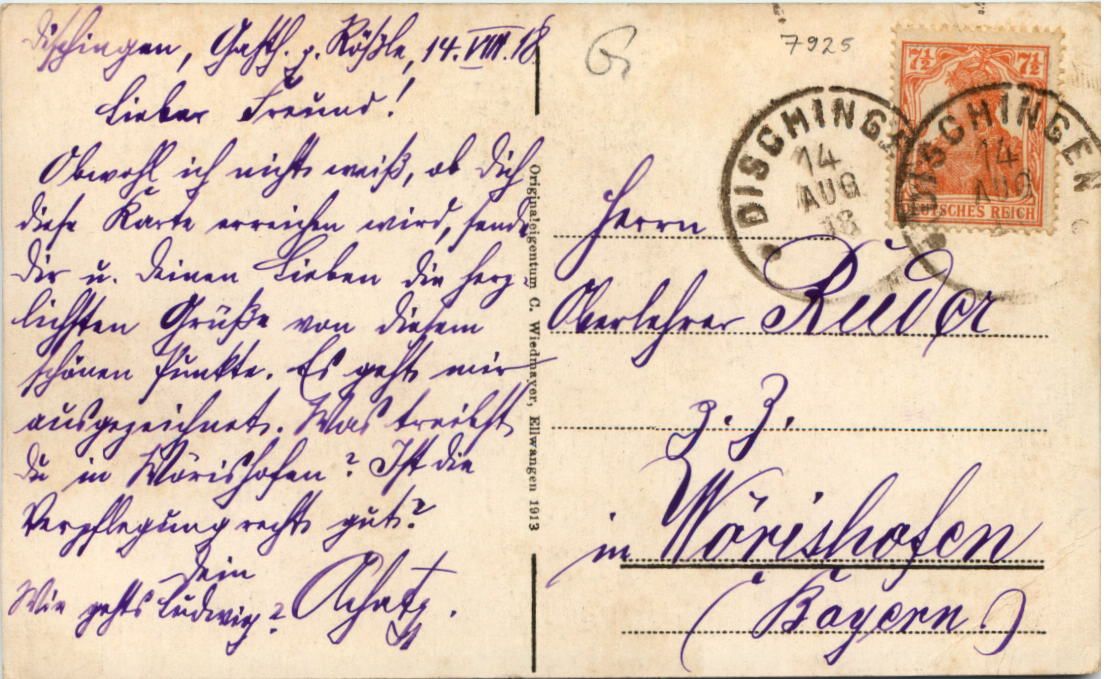 Dischingen, Gasth. z. Rößle, 14. VIII. 18.
Lieber Freund!
Obwohl ich nicht weiß, ob Dich
diese Karte erreichen wird, sende
Dir u. Deinen Lieben die herz
lichsten Grüße von diesem
schönen Punkte. Es geht mir
ausgezeichnet. Was treibst
Du in Wörishofen? Ist die
Verpflegung recht gut?
Dein
Wie gehts Ludwig?
Originaleigentum C. Wiedmayer, Ellwangen 1913
7925
7½ 7½
DEUTSCHES REICH
DISCHINGEN
14
AUG
18
DISCHINGEN
14
AUG
Herrn
Oberlehrer Ruder
z. Z.
in Wörishofen
(Bayern)